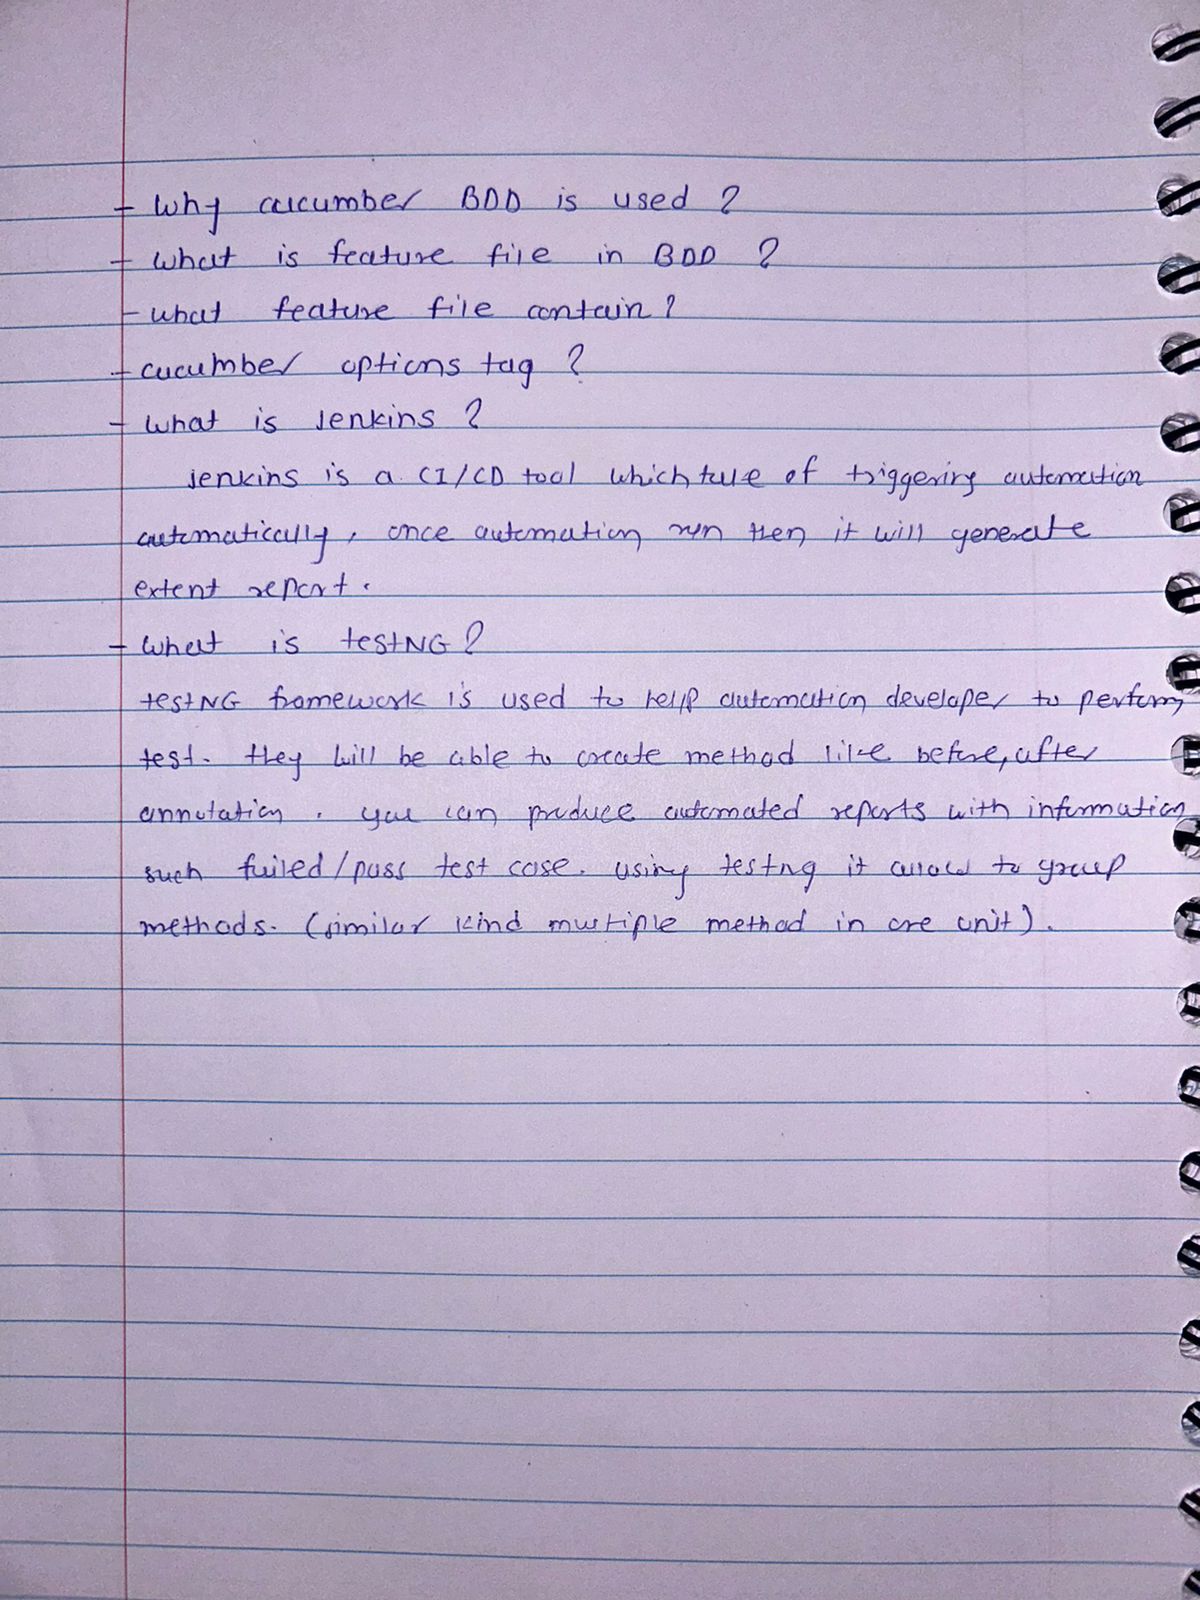 - Why cucumber BDD is used ?
- What is feature file in BDD ?
- what feature file contain ?
- cucumber options tag ?
- What is Jenkins ?
Jenkins is a CI/CD tool which of triggering automation
automatically, once automation run then it will generate
extent report.
- What is testNG ?
testNG framework is used to help automation developer to perform
test. they will be able to create method like before, after
annotation. you can produce automated reports with information
such failed/pass test case. using testng it allow to group
methods. (similar kind multiple method in one unit).